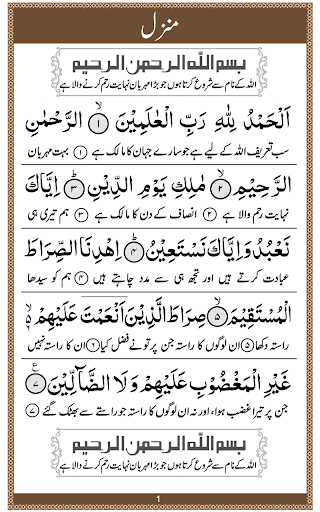 منزل
بسم الله الرحمن الرحيم
اللہ کے نام سے شروع کرتا ہوں جو بڑا مہربان نہایت رحم کرنے والا ہے
اَلْحَمْدُ لِلّٰهِ رَبِّ الْعٰلَمِيْنَ ۙ﴿۱﴾ الرَّحْمٰنِ
سب تعریف اللہ کے لیے ہے جو سارے جہان کا مالک ہے ﴿۱﴾ بہت مہربان
الرَّحِيْمِ ۙ﴿۲﴾ مٰلِكِ يَوْمِ الدِّيْنِ ﴿۳﴾ اِيَّاكَ
نہایت رحم والا ہے ﴿۲﴾ انصاف کے دن کا مالک ہے ﴿۳﴾ ہم تیری ہی
نَعْبُدُ وَاِيَّاكَ نَسْتَعِيْنُ ﴿۴﴾ اِهْدِنَا الصِّرَاطَ
عبادت کرتے ہیں اور تجھ ہی سے مدد چاہتے ہیں ﴿۴﴾ ہم کو سیدھا
الْمُسْتَقِيْمَ ۙ﴿۵﴾ صِرَاطَ الَّذِيْنَ اَنْعَمْتَ عَلَيْهِمْ ۙ
راستہ دکھا ﴿۵﴾ ان لوگوں کا راستہ جن پر تو نے فضل کیا ﴿۶﴾ ان کا راستہ نہیں
غَيْرِ الْمَغْضُوْبِ عَلَيْهِمْ وَلَا الضَّآلِّيْنَ ﴿۷﴾ ع
جن پر تیرا غضب ہوا، اور نہ ان لوگوں کا راستہ جو راستے سے بھٹک گئے ﴿۷﴾
بسم الله الرحمن الرحيم
اللہ کے نام سے شروع کرتا ہوں جو بڑا مہربان نہایت رحم کرنے والا ہے
1